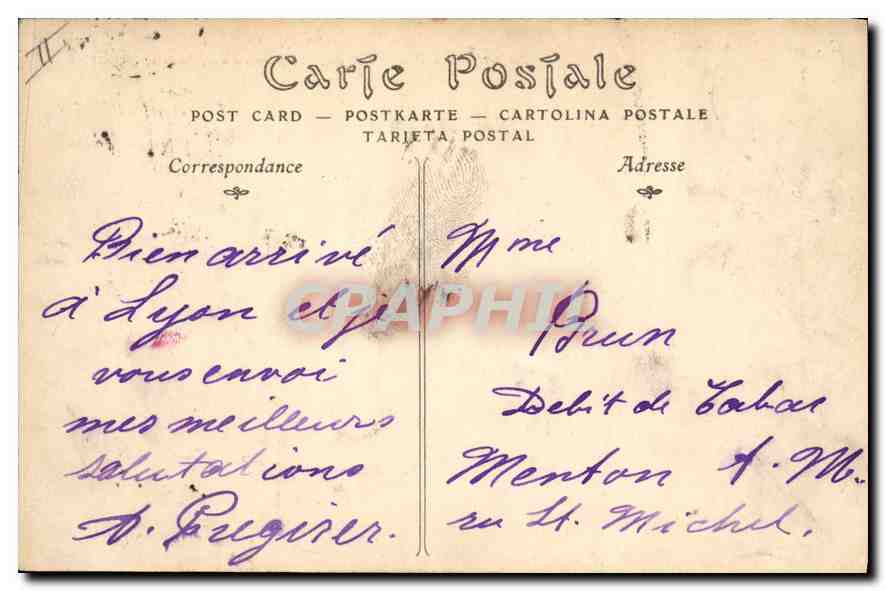 II
Carte Postale
POST CARD — POSTKARTE — CARTOLINA POSTALE
TARJETA POSTAL
Correspondance
Bien arrivé
à Lyon et je
vous envoi
mes meilleurs
salutations
A.
Adresse
Mme
Brun
Debit de Tabac
Menton A. M.
ru St. Michel.
CRAPHIL